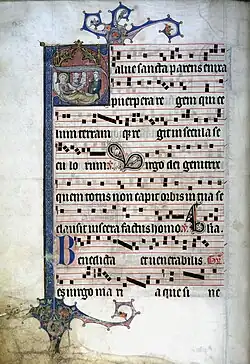 alue sancta parens enixa
puerpera re gem qui ce
lum terram que re git in secula se
culo rum Uirgo dei genitrix
quem totus non capit orbis in tua se
clausit uiscera factus homo A lia
Benedicta et uenerabilis
es uirgo ma ri a que si ne